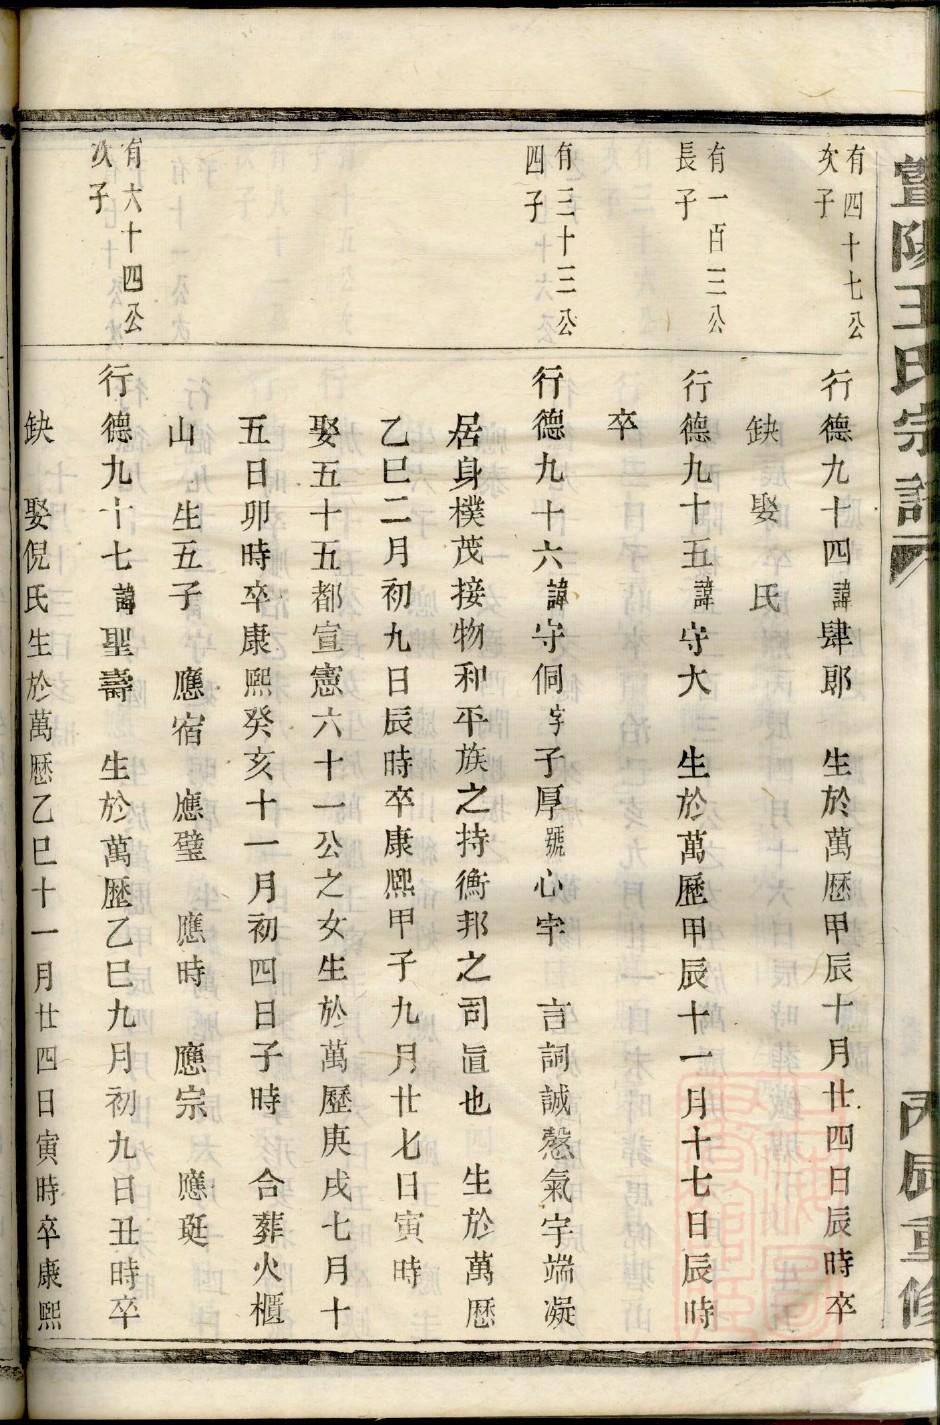 暨陽王氏宗譜
丙辰重修
有四十七公
次子
行德九十四諱肆郎　生於萬歷甲辰十月廿四日辰時卒
缺　娶　氏
有一百三公
長子
行德九十五諱守大　生於萬歷甲辰十一月十七日辰時
卒
有三十三公
四子
行德九十六諱守侗字子厚號心宇　言詞誠慤氣宇端凝
居身樸茂接物和平族之持衡邦之司直也　生於萬歷
乙巳二月初九日辰時卒康熙甲子九月廿七日寅時
娶五十五都宣憲六十一公之女生於萬歷庚戌七月十
五日卯時卒康熙癸亥十一月初四日子時　合葬火櫃
山　生五子　應宿　應璧　應時　應宗　應珽
有六十四公
次子
行德九十七諱聖壽　生於萬歷乙巳九月初九日丑時卒
缺　娶倪氏生於萬歷乙巳十一月廿四日寅時卒康熙